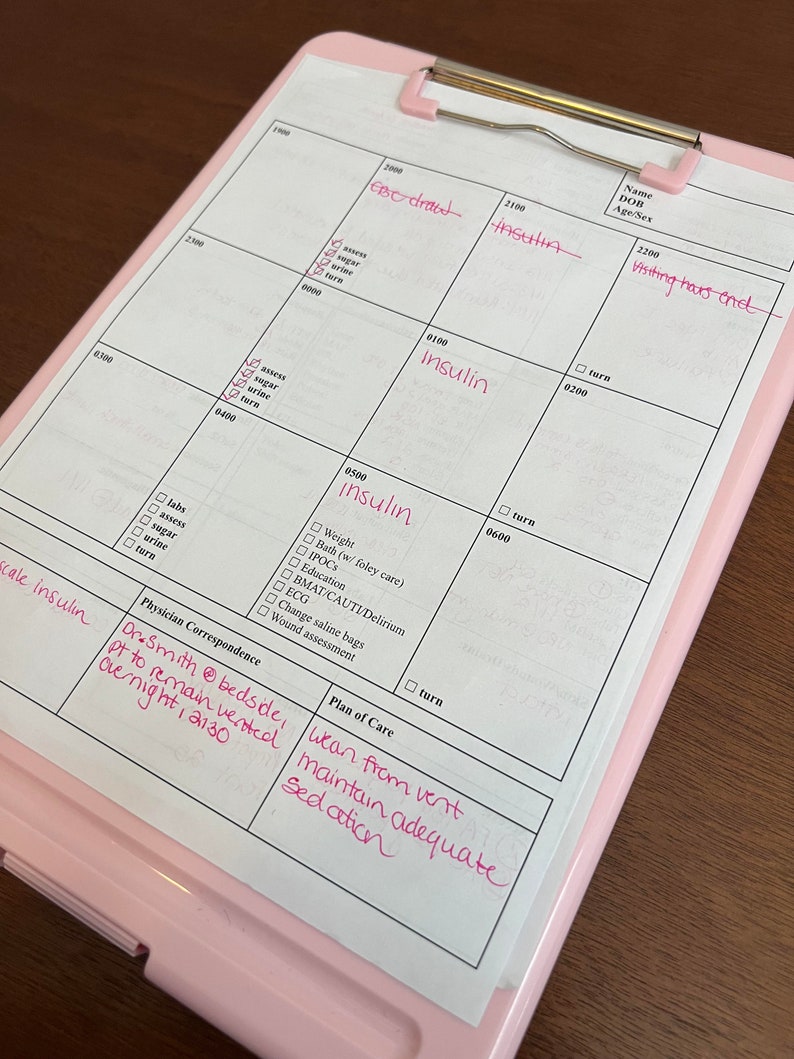 Name
DOB
Age/Sex
1900
2000
CBC draw
assess
sugar
urine
turn
2100
insulin
2200
Visiting hours end
turn
2300
0000
assess
sugar
urine
turn
0100
insulin
0200
turn
0300
0400
labs
assess
sugar
urine
turn
0500
insulin
Weight
Bath (w/ foley care)
IPOCs
Education
BMAT/CAUTI/Delirium
ECG
Change saline bags
Wound assessment
0600
turn
scale insulin
Physician Correspondence
Dr. Smith @ bedside,
pt to remain vented
overnight, 2130
Plan of Care
Wean from vent
maintain adequate
sedation